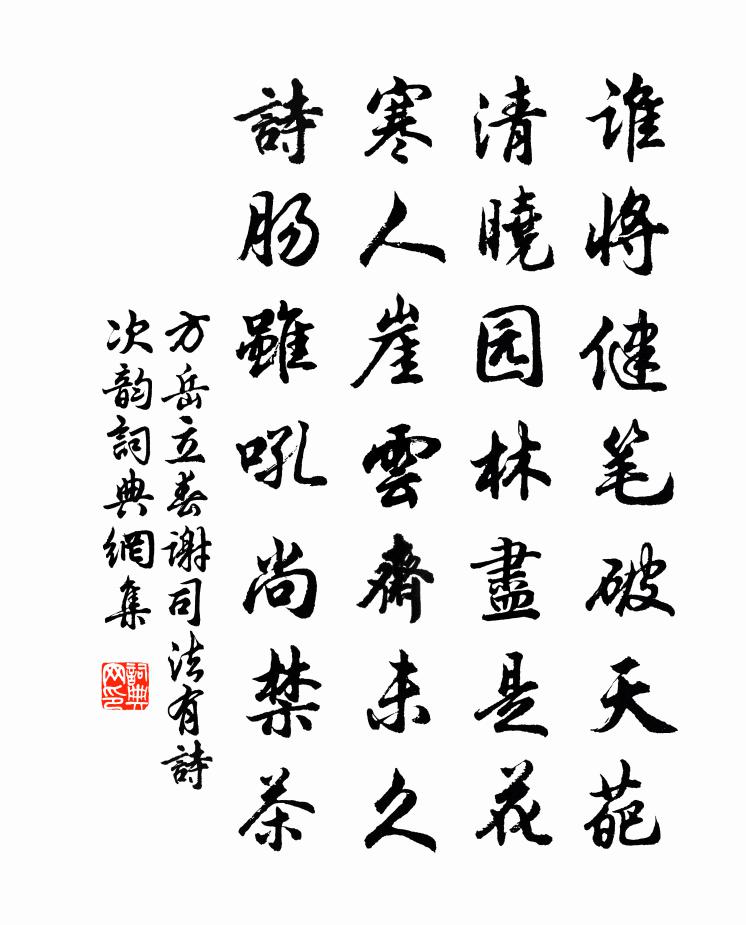 谁將健笔破天葩
清曉园林盡是花
寒人崖雲齊未久
詩肠雖吼尚禁茶
方岳立春謝司法有詩
次韵詞典網集
詞典网印